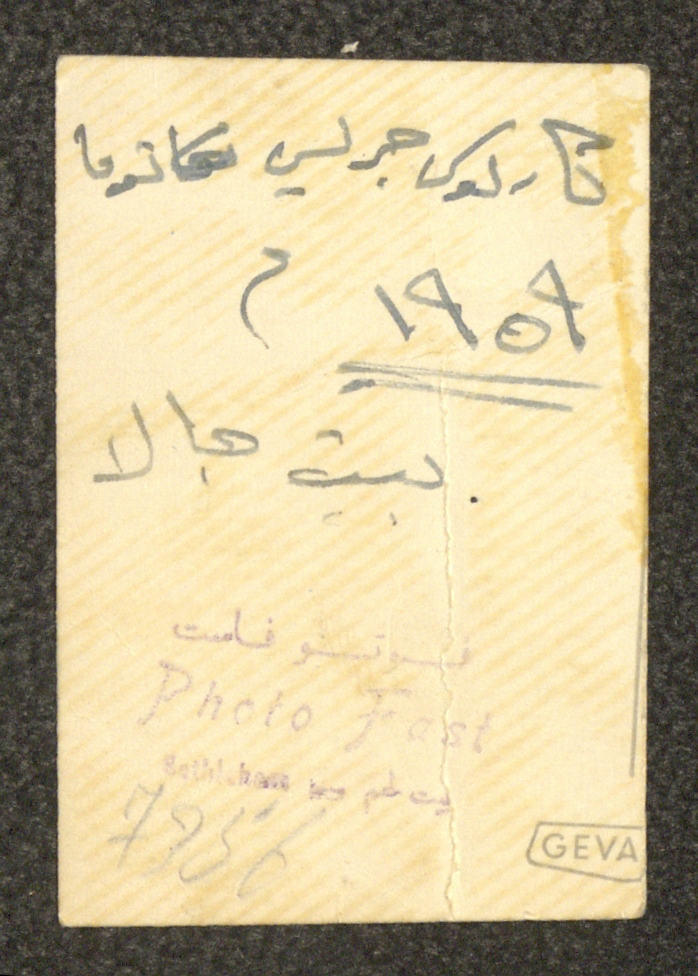 كارلوس جريس
١٩٥٩ م
بيت جالا
فوتو فاست
Photo Fast
Bethlehem بيت لحم
7956
GEVA